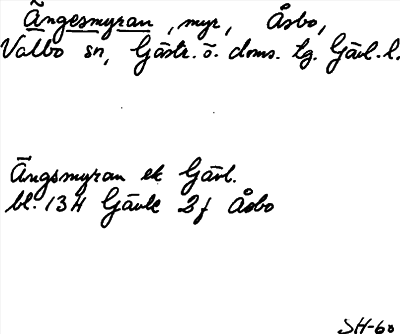 Ängesmyran, myr, Åsbo,
Valbo sn, Gästr. ö. doms. tg. Gävl. l.
Ängsmyran ek Gävl.
bl. 13H Gävle 2f Åsbo
SH-60